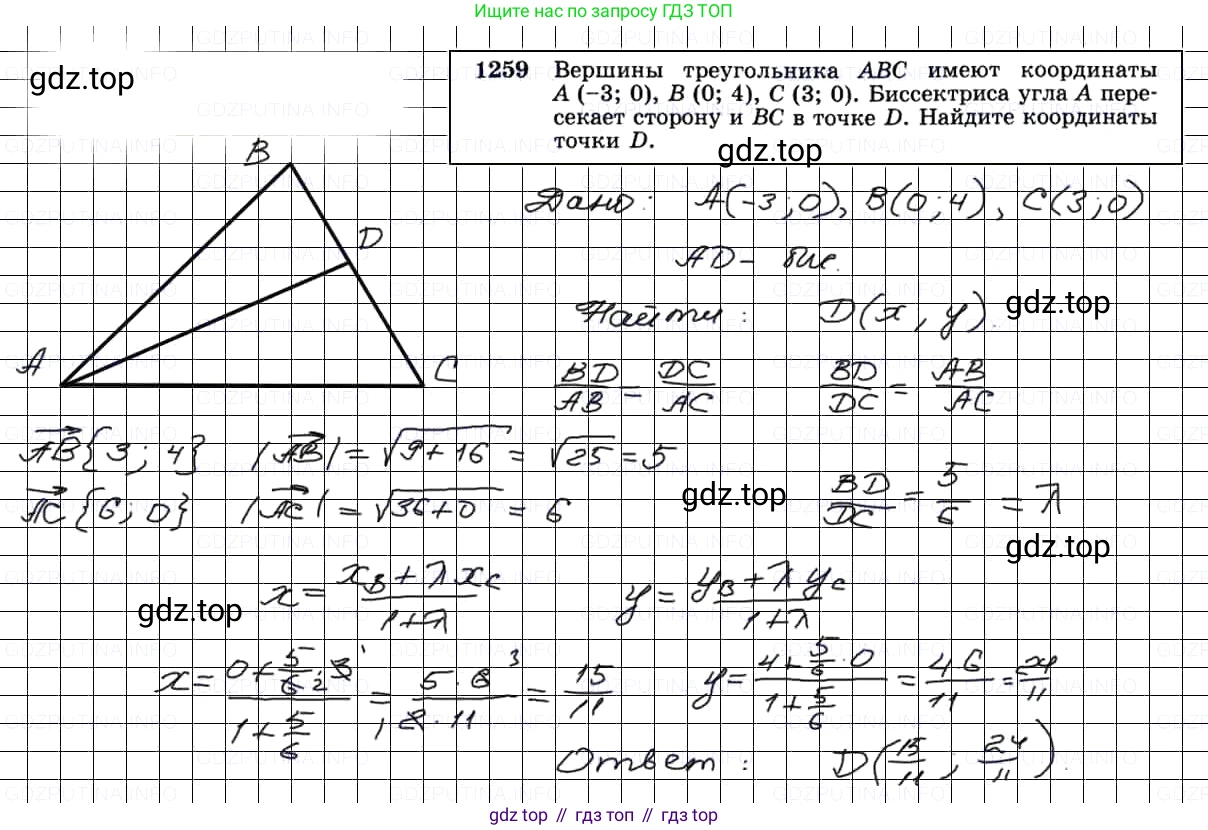 Ищите нас по запросу ГДЗ ТОП
gdz.top
1259 Вершины треугольника ABC имеют координаты
A (−3; 0), B (0; 4), C (3; 0). Биссектриса угла A пере-
секает сторону и BC в точке D. Найдите координаты
точки D.
gdz.top
B
Дано: A(-3;0), B(0;4), C(3;0)
D
AD - бис.
Найти: D(x, y).
gdz.top
A
C
BD/AB = DC/AC BD/DC = AB/AC
AB{3; 4} |AB| = √9+16 = √25 = 5
AC{6; 0} |AC| = √36+0 = 6
gdz.top
BD/DC = 5/6 = λ
gdz.top
x = xB + λxC / 1+λ y = yB + λyC / 1+λ
gdz.top
x = 0 + 5/6 2 · 3 1 / 1 + 5/6 = 5 · 6 3 / 1 2 · 11 = 15/11 y = 4 + 5/6 · 0 / 1 + 5/6 = 4·6/11 = 24/11
Ответ: D(15/11; 24/11).
gdz top // гдз топ // gdz top
GDZPUTINA.INFO